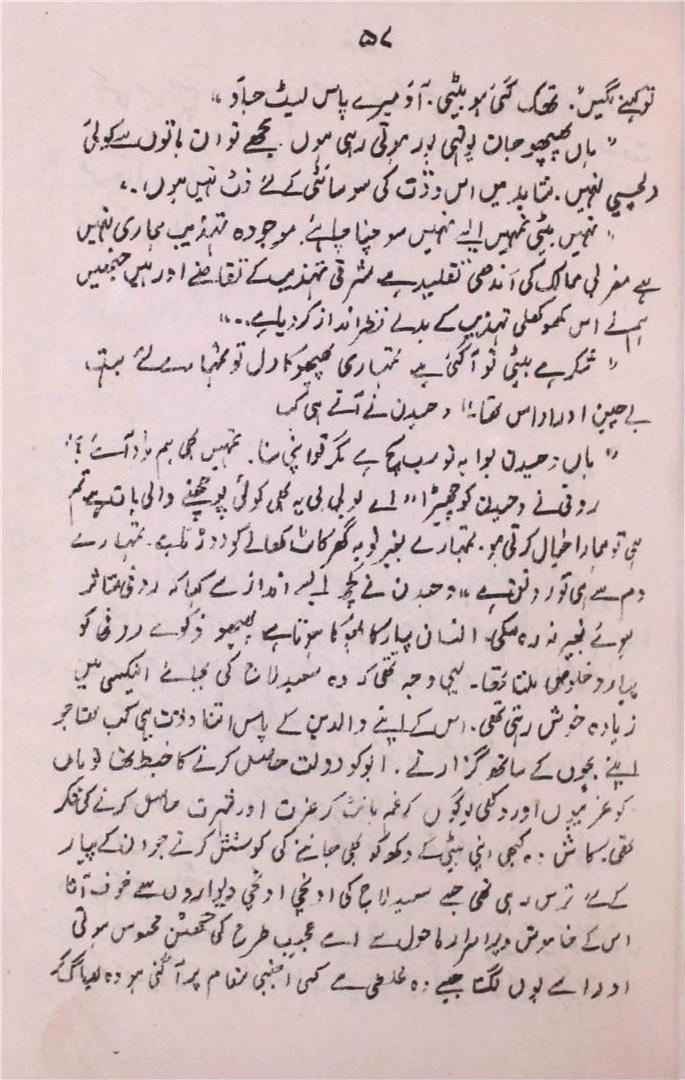 ۵۷
تو کہنے لگیں"۔ تھک گئی ہو بیٹی۔ آؤ میرے پاس لیٹ جاؤ"
"ہاں پھپھو جان یونہی بور ہوتی رہی ہوں۔ مجھے تو ان باتوں سے کوئی
دلچسپی نہیں۔ شاید میں اس وقت کی سوسائٹی کے لئے فٹ نہیں ہوں"۔
"نہیں بیٹی تمہیں ایسے نہیں سوچنا چاہئے۔ موجودہ تہذیب ہماری نہیں
ہے مغربی ممالک کی اندھی تقلید ہے مشرقی تہذیب کے تقاضے اور ہیں جنہیں
ہم نے اس کھوکھلی تہذیب کے بدلے نظر انداز کر دیا ہے۔۔"
"شکر ہے بیٹی تو آ گئی ہے تمہاری پھپھو کا دل تو تمہارے لئے بہت
بے چین اور اداس تھا"۔ وحیدن نے آتے ہی کہا
"ہاں وحیدن بوا یہ تو سب سچ ہے مگر تو اپنی سنا۔ تمہیں بھی ہم یاد آئے؟"
روفی نے وحیدن کو چھیڑا "اے لو بی بی یہ بھی کوئی پوچھنے والی بات ہے تم
ہی تو ہمارا خیال کرتی ہو۔ تمہارے بغیر تو یہ گھر کاٹ کھانے کو دوڑتا ہے۔ تمہارے
دم سے ہی تو رونق ہے" وحیدن نے کچھ ایسے انداز سے کہا کہ روفی متاثر
ہوئے بغیر نہ رہ سکی۔ انسان پیار کا بھوکا ہوتا ہے پھپھو ذکو سے روفی کو
پیار و خلوص ملتا تھا۔ یہی وجہ تھی کہ وہ سعید لاج کی بجائے انیکسی میں
زیادہ خوش رہتی تھی۔ اس کے اپنے والدین کے پاس اتنا وقت ہی کب تھا جو
اپنے بچوں کے ساتھ گزارتے۔ ابو کو دولت حاصل کرنے کا خبط تھا تو ماں
کو غریبوں اور دکھی لوگوں کے غم بانٹ کر عزت اور شہرت حاصل کرنے کی فکر
تھی۔ کاش وہ کبھی اپنی بیٹی کے دکھ کو بھی جاننے کی کوشش کرتے جو ان کے پیار
کے لئے ترس رہی تھی جسے سعید لاج کی اونچی اونچی دیواروں سے خوف آتا
اس کے خاموش و پراسرار ماحول سے اسے عجیب طرح کی گھٹن محسوس ہوتی
اور اسے یوں لگتا جیسے وہ غلطی سے کسی اجنبی مقام پر آ گئی ہو وہ بھاگ کر